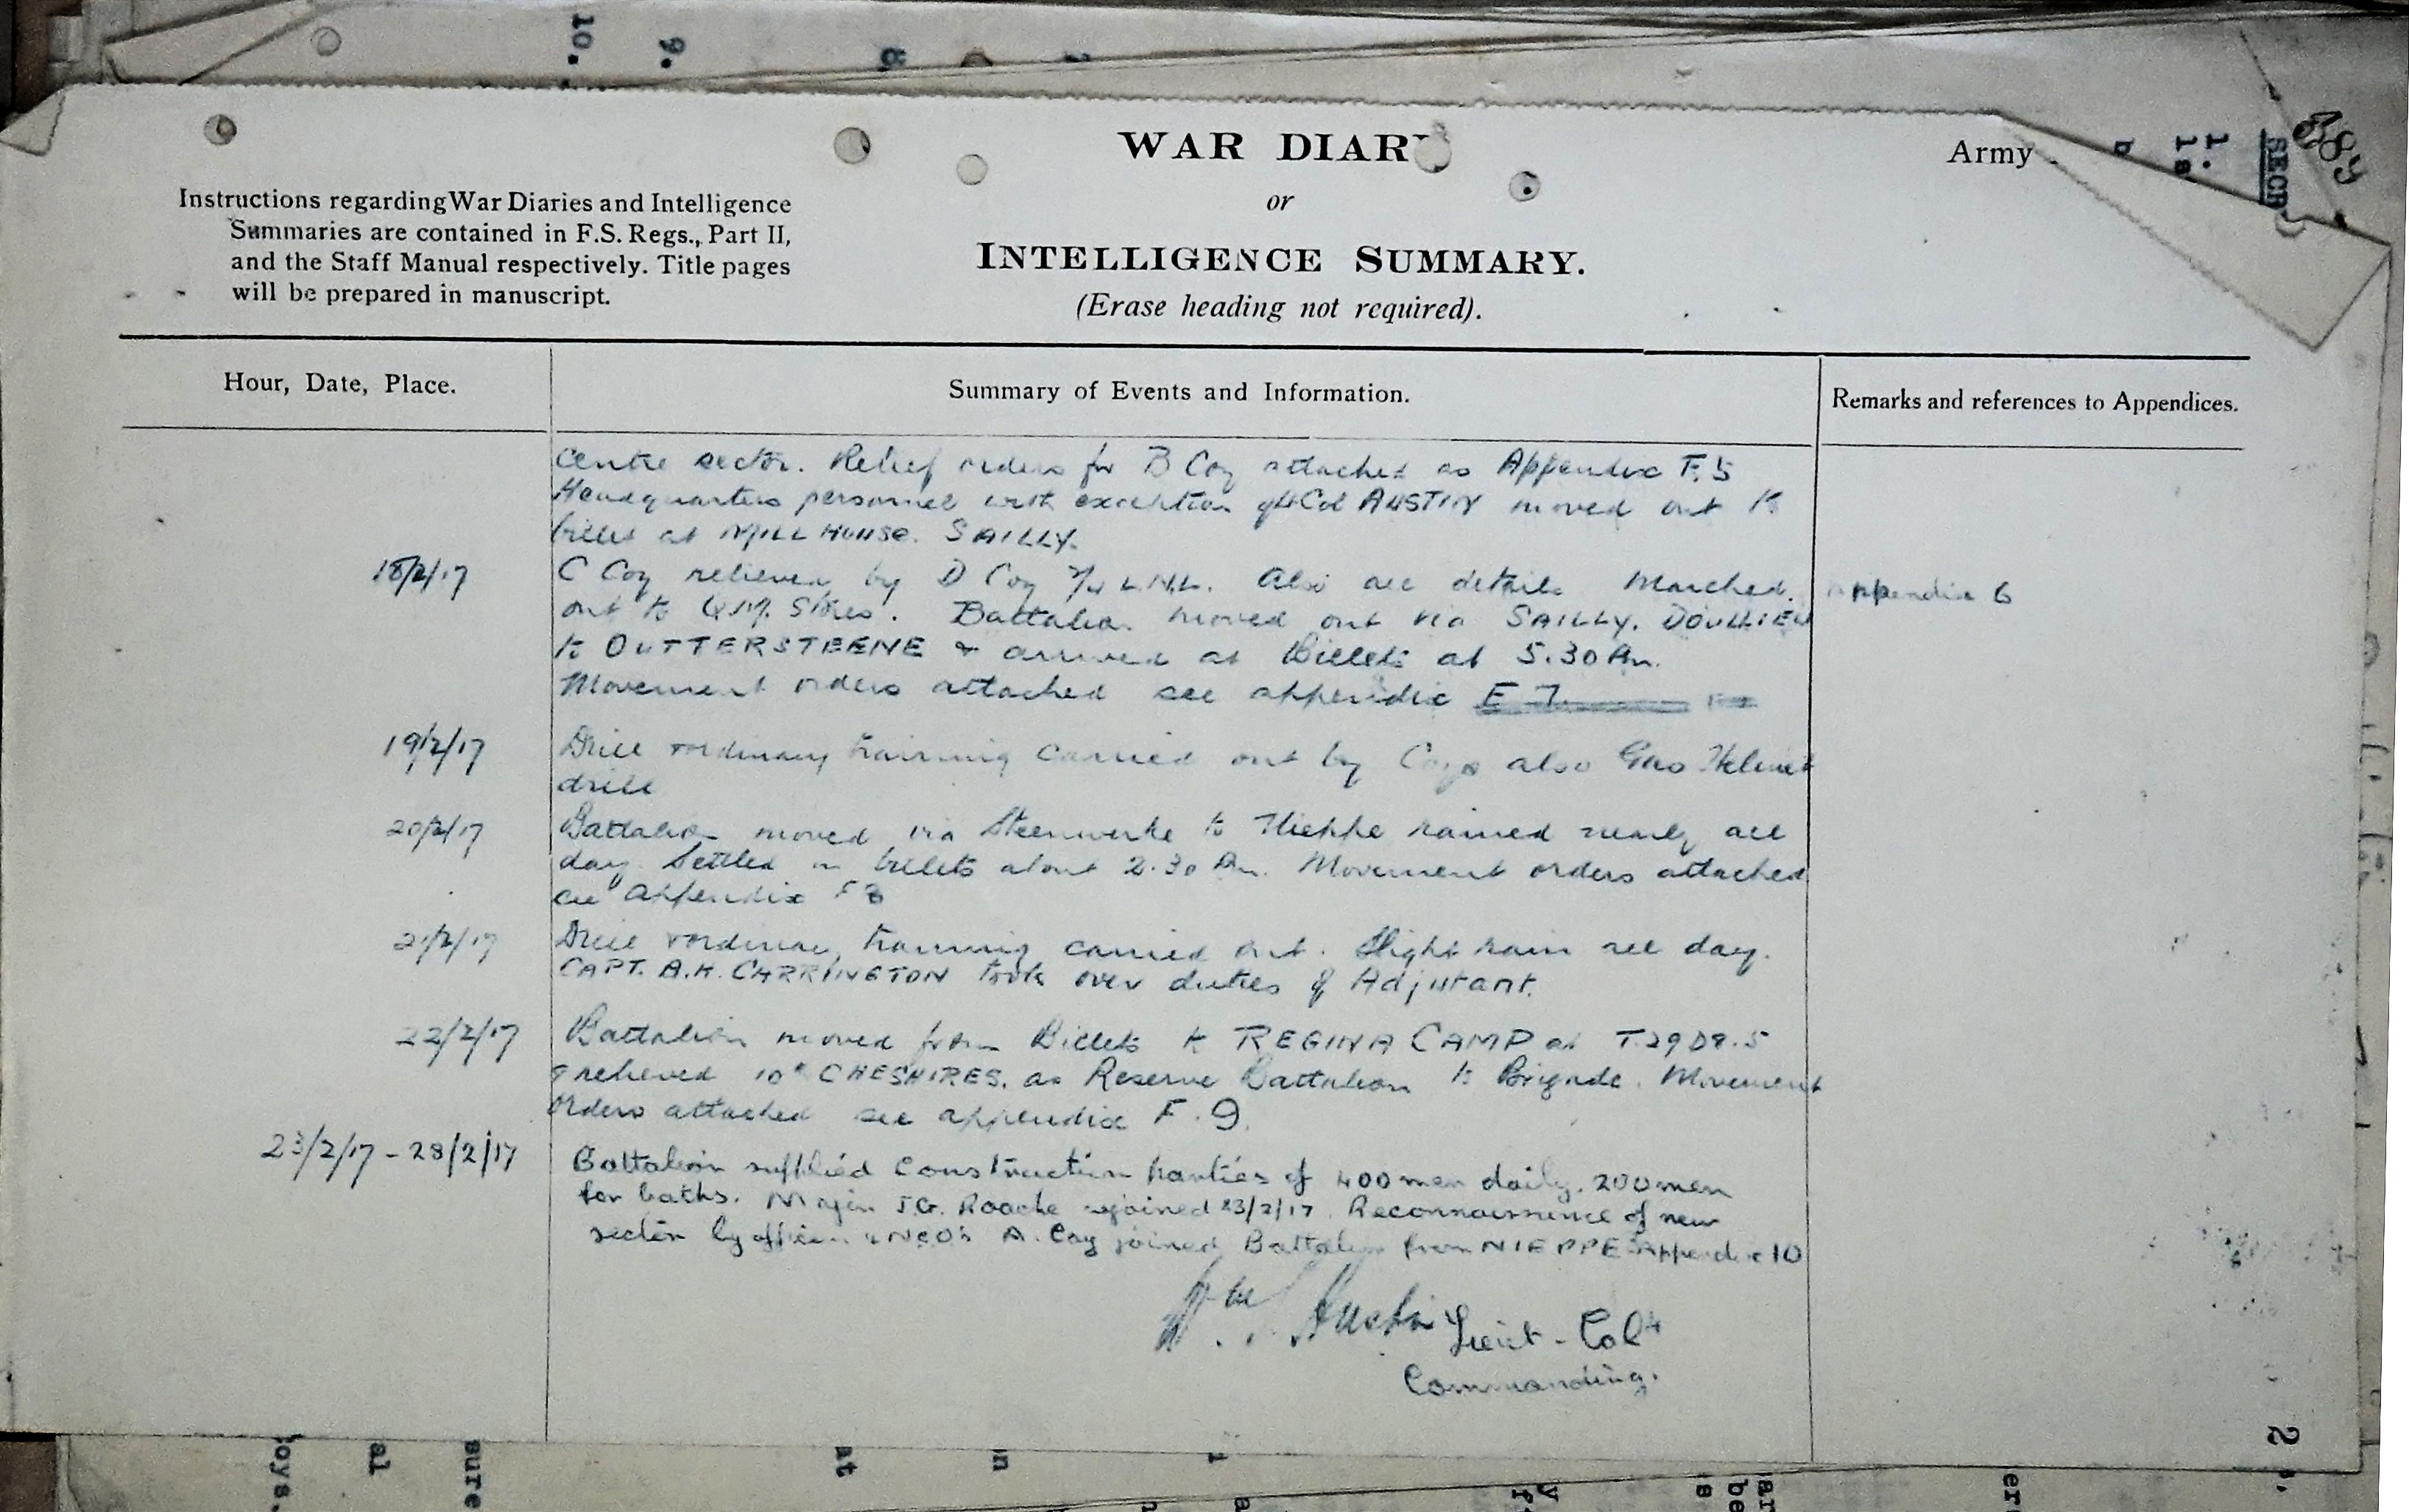 10. 9. 8.
WAR DIAR
Army
389
SECR
1.
1s
b
or
Instructions regarding War Diaries and Intelligence
Summaries are contained in F.S. Regs., Part II,
and the Staff Manual respectively. Title pages
will be prepared in manuscript.
INTELLIGENCE SUMMARY.
(Erase heading not required).
Hour, Date, Place.
Summary of Events and Information.
Remarks and references to Appendices.
Centre sector. Relief orders for B Coy attached as Appendix F.5
Headquarters personnel with exception of Lt Col AUSTIN moved out to
billets at MILL HOUSE. SAILLY.
18/2/17
C Coy relieved by D Coy L.N.L. Also all details Marched
Appendix 6
out to Q.M. Stores. Battalion moved out via SAILLY. DOULLIEU
to OUTTERSTEENE & arrived at Billets at 5.30 Pm.
Movement orders attached see appendix E 7
19/2/17
Drill & ordinary training carried out by Coys also Gas Helmet
drill
20/2/17
Battalion moved via Steenwerke to Nieppe rained nearly all
day. Settled in billets about 2.30 Pm. Movement orders attached
see appendix F 8
21/2/17
Drill & ordinary training carried out. Slight rain all day.
CAPT. A.H. CARRINGTON took over duties of Adjutant.
22/2/17
Battalion moved from Billets to REGINA CAMP at T.29 D8.5
& relieved 10th CHESHIRES. as Reserve Battalion to Brigade. Movement
orders attached see appendix F.9.
23/2/17 - 28/2/17
Battalion supplied Construction parties of 400 men daily. 200 men
for baths. Major J.G. Roache rejoined 23/2/17. Reconnaissance of new
sector by officers & NCO's A. Coy joined Battalion from NIEPPE Appendix 10
Wm. Austin Lieut-Col
Commanding.
2
oys.
al
sure
at
n
y
be
ar
er